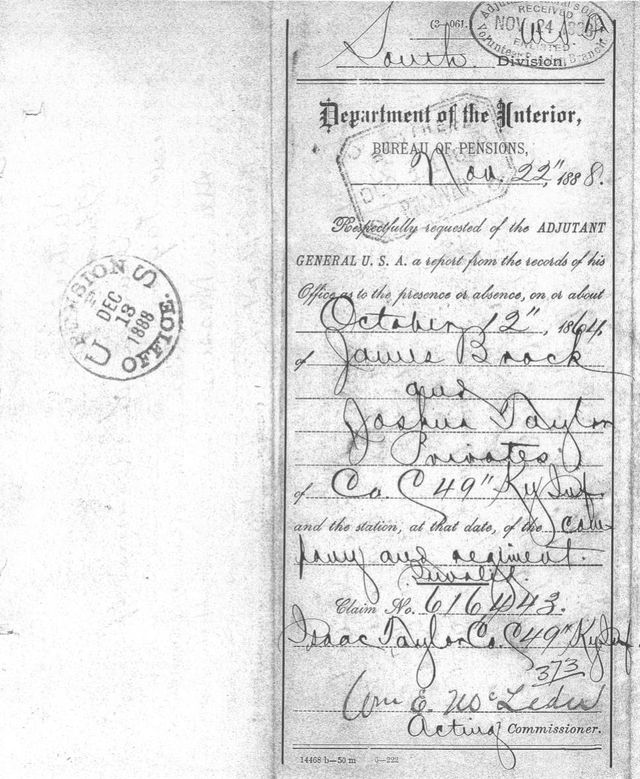 (3—061.)
Adjutant General's Office
RECEIVED
NOV 24 1888
ENLISTED
Volunteer Branch
South Division,
Department of the Interior,
BUREAU OF PENSIONS,
Nov. 22", 1888.
Respectfully requested of the ADJUTANT
GENERAL U. S. A. a report from the records of his
Office as to the presence or absence, on or about
October 12", 1864,
of James Brock
and
Joshua Taylor
Privates
of Co. C 49" Ky Inf
and the station, at that date, of the com
pany and regiment.
Invalid.
Claim No. 616443.
Isaac Taylor Co. C 49" Ky Inf.
373
Wm E. McLeder
Acting Commissioner.
14468 b—50 m 6—222
U S PENSION OFFICE.
DEC
13
1888